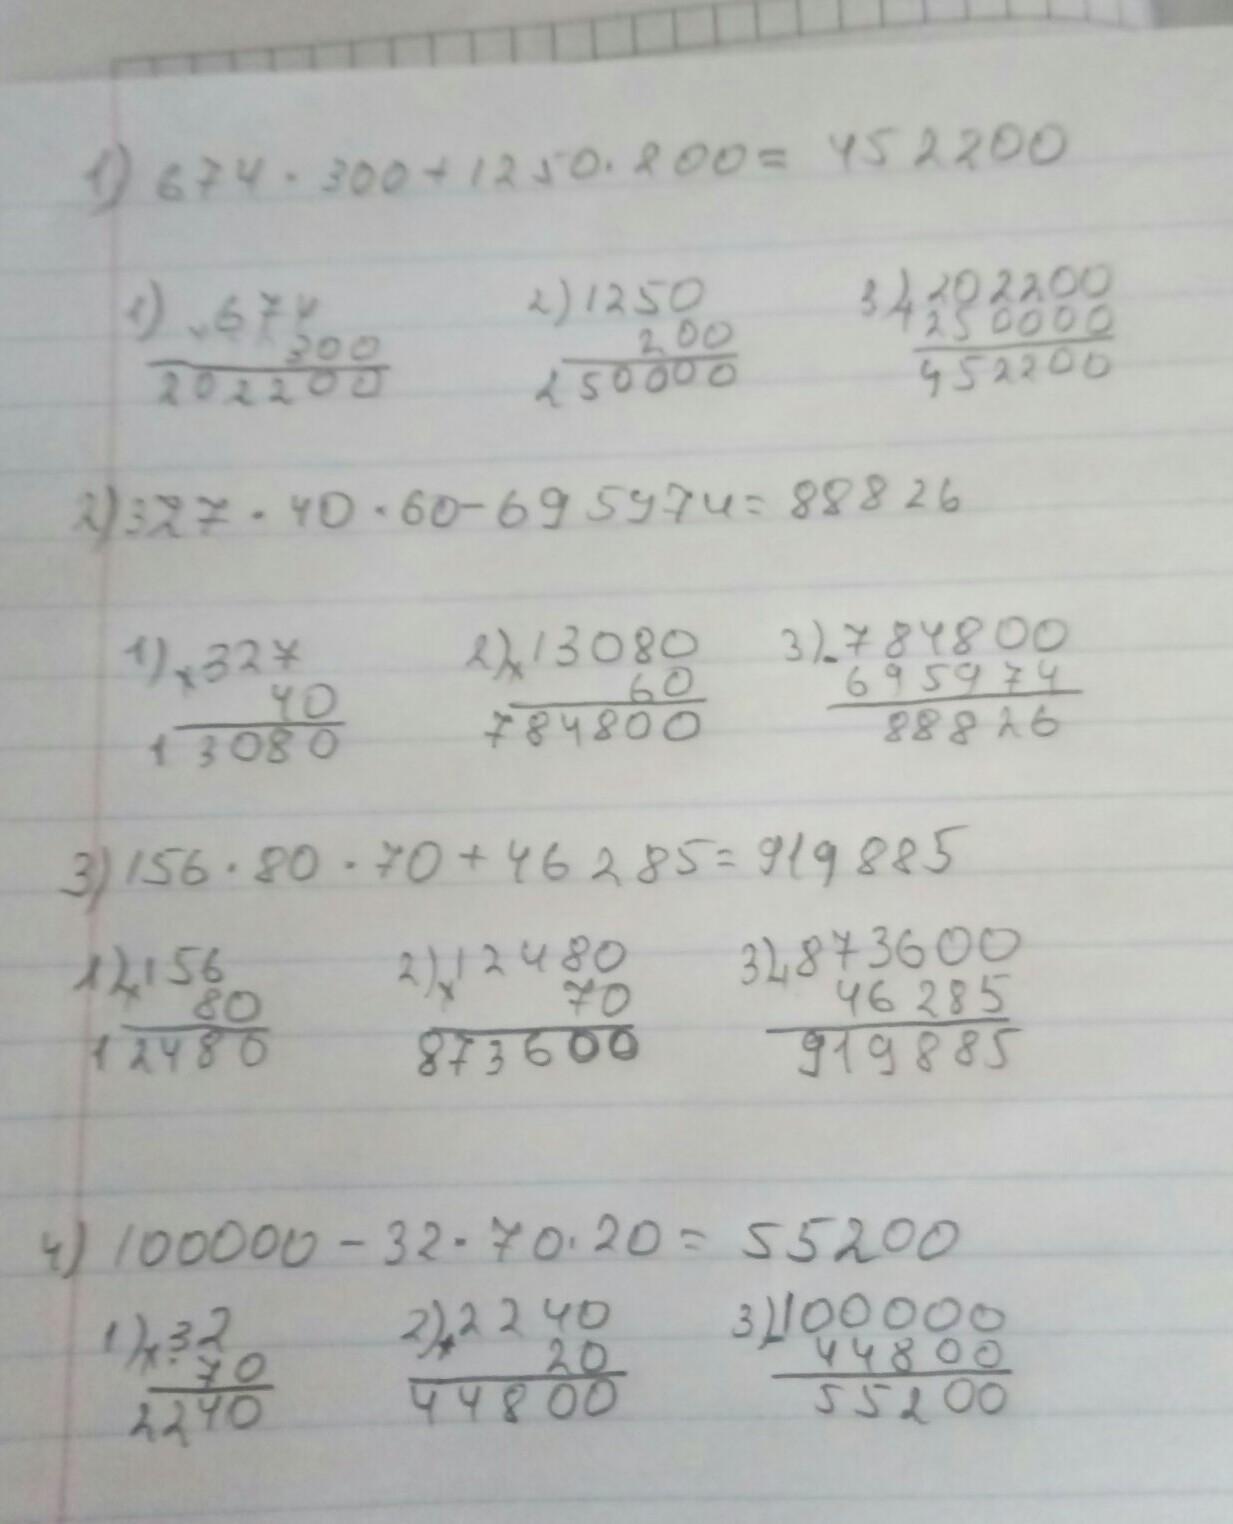 1) 674 · 300 + 1250 · 200 = 452200
1) × 674 2) 1250 3) + 202200
300 200 250000
202200 250000 452200
2) 327 · 40 · 60 - 695974 = 88826
1) × 327 2) × 13080 3) - 784800
40 60 695974
13080 784800 88826
3) 156 · 80 · 70 + 46285 = 919885
1) × 156 2) × 12480 3) + 873600
80 70 46285
12480 873600 919885
4) 100000 - 32 · 70 · 20 = 55200
1) × 32 2) × 2240 3) - 100000
70 20 44800
2240 44800 55200